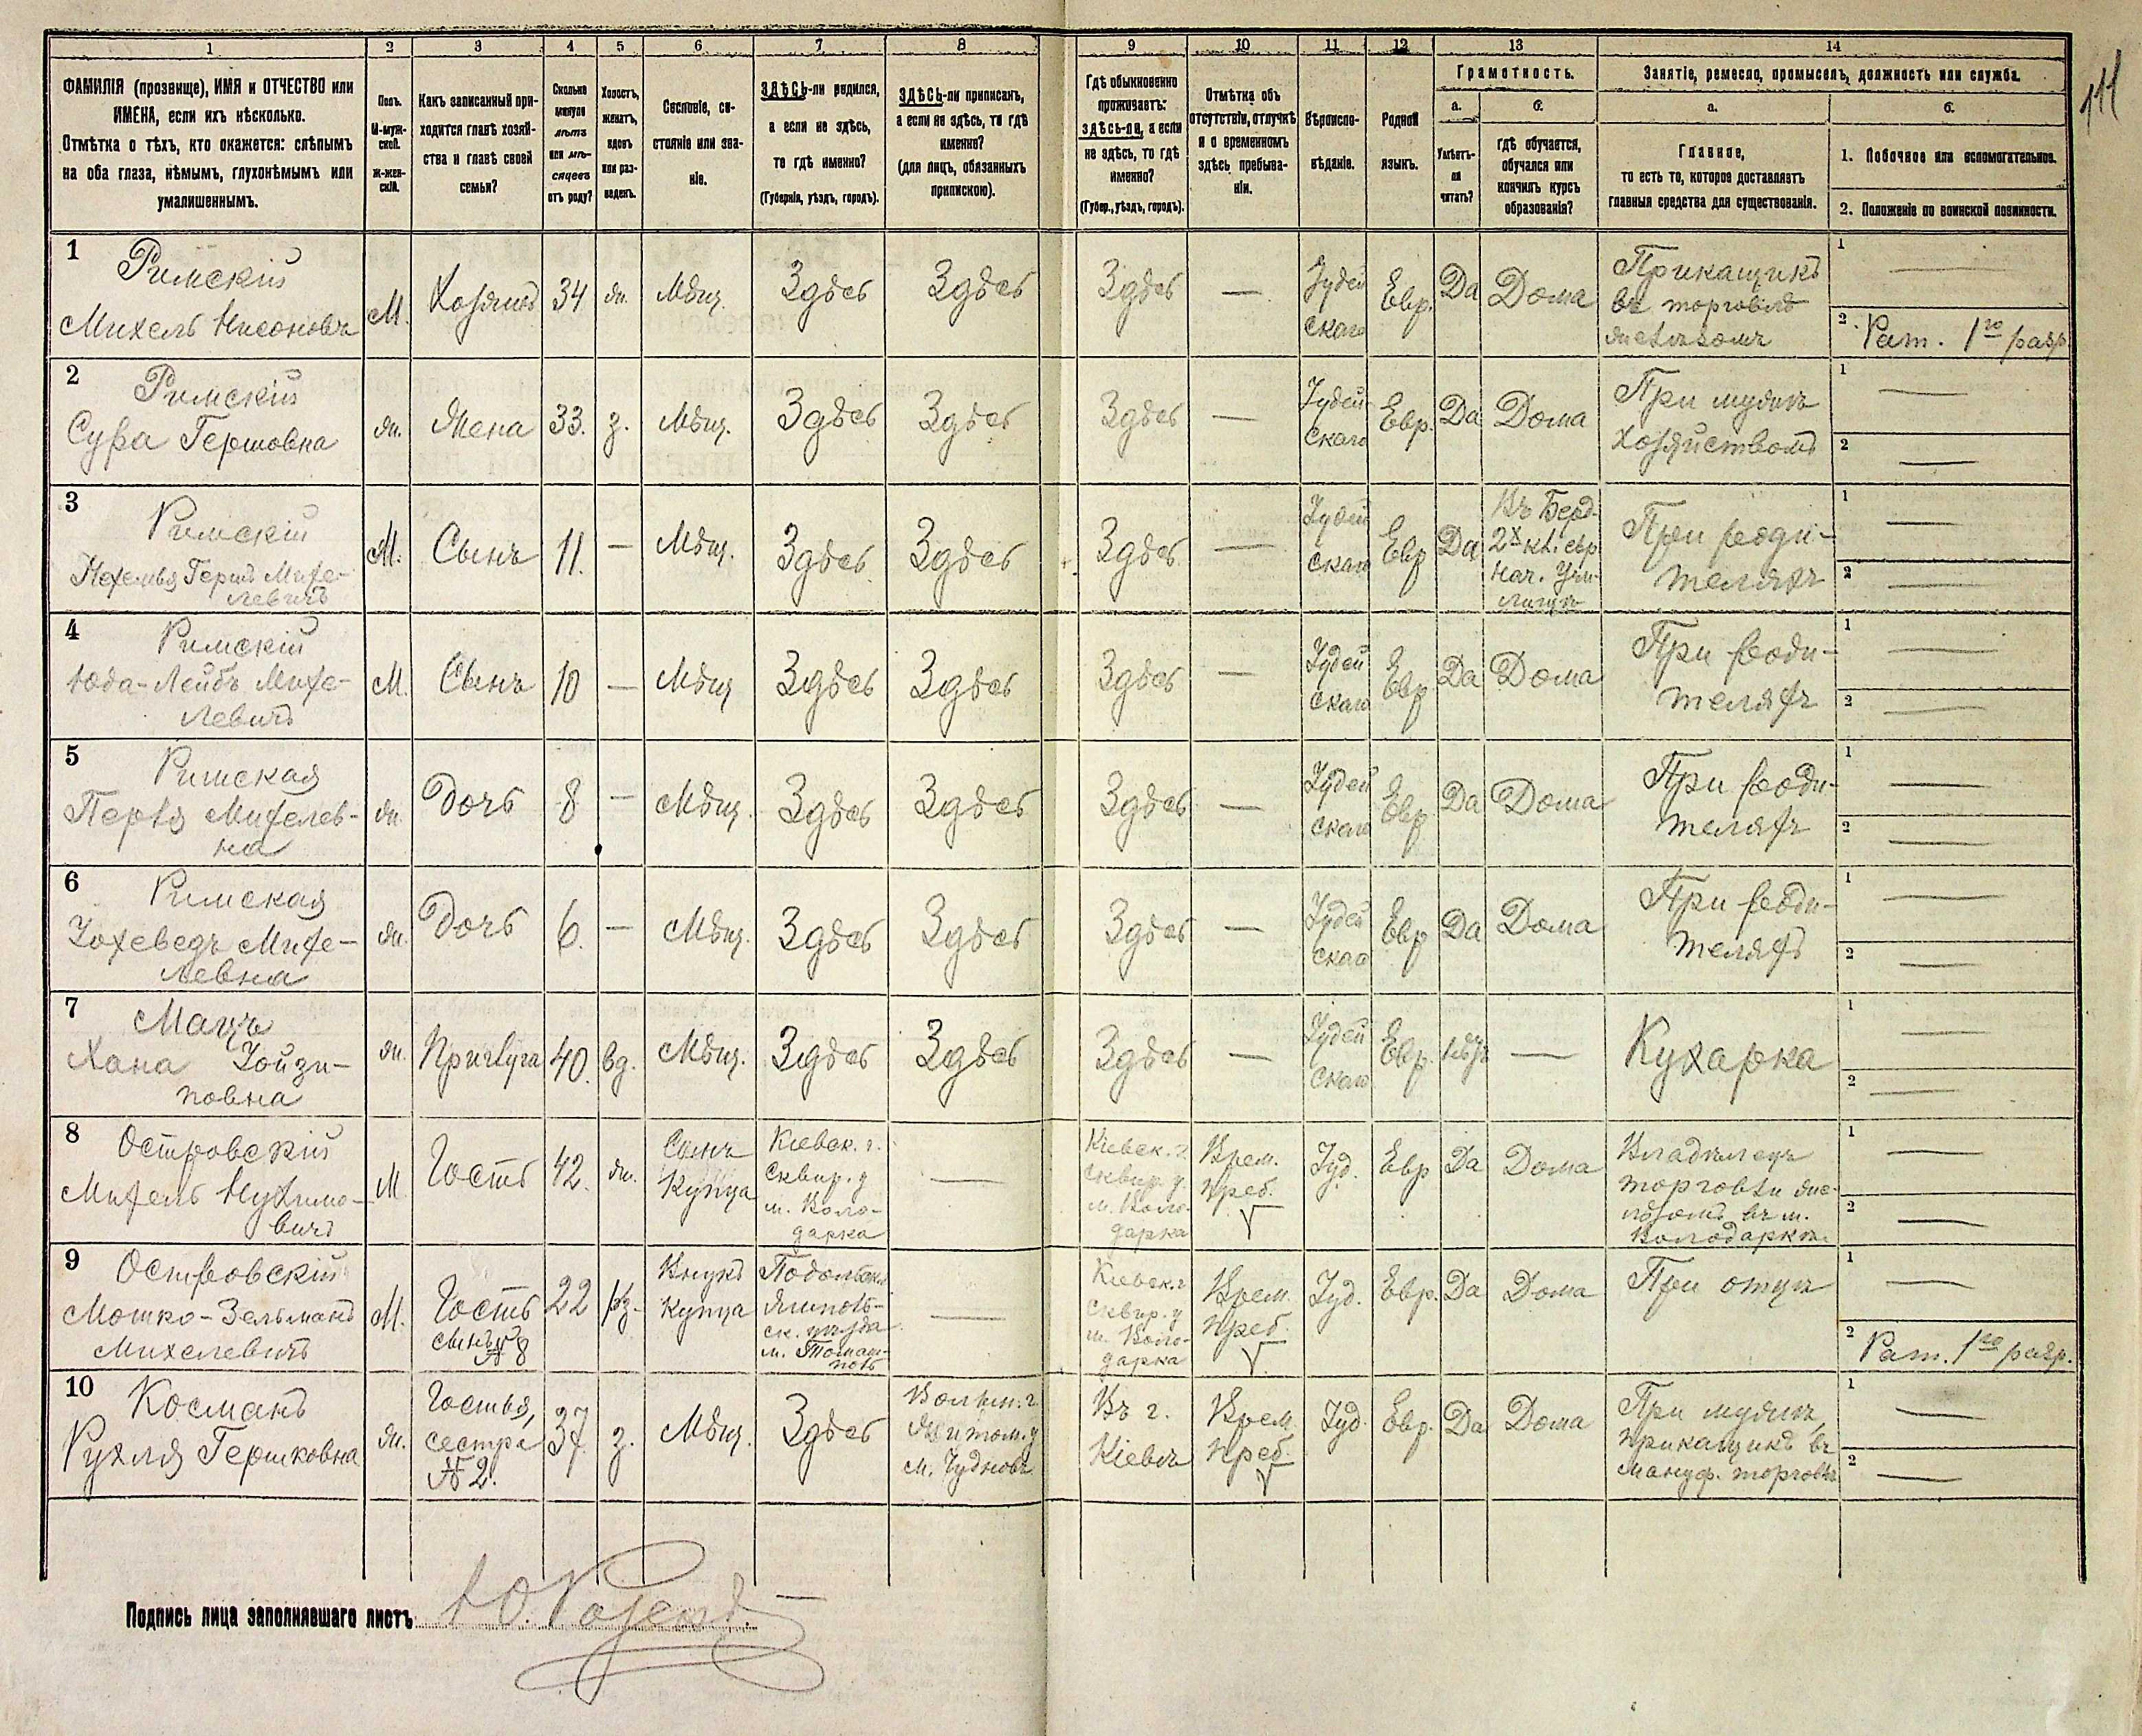 111
1 2 3 4 5 6 7 8 9 10 11 12 13 14
ФАМИЛІЯ (прозвище), ИМЯ и ОТЧЕСТВО или
ИМЕНА, если ихъ нѣсколько.
Отмѣтка о тѣхъ, кто окажется: слѣпымъ
на оба глаза, нѣмымъ, глухонѣмымъ или
умалишеннымъ.
Полъ.
М-муж-
ской.
Ж-жен-
скій.
Какъ записанный при-
ходится главѣ хозяй-
ства и главѣ своей
семьи?
Сколько
минуло
лѣтъ
или мѣ-
сяцевъ
отъ роду?
Холостъ,
женатъ,
вдовъ
или раз-
веденъ.
Сословіе, со-
стояніе или зва-
ніе.
ЗДѢСЬ-ли родился,
а если не здѣсь,
то гдѣ именно?
(Губернія, уѣздъ, городъ).
ЗДѢСЬ-ли приписанъ,
а если не здѣсь, то гдѣ
именно?
(для лицъ, обязанныхъ
припискою).
Гдѣ обыкновенно
проживаетъ:
здѣсь-ли, а если
не здѣсь, то гдѣ
именно?
(Губер., уѣздъ, городъ).
Отмѣтка объ
отсутствіи, отлучкѣ
и о временномъ
здѣсь пребыва-
ніи.
Вѣроиспо-
вѣданіе.
Родной
языкъ.
Грамотность.
а.
Умѣетъ-
ли
читать?
б.
гдѣ обучается,
обучался или
кончилъ курсъ
образованія?
Занятіе, ремесло, промыселъ, должность или служба.
а.
Главное,
то есть то, которое доставляетъ
главныя средства для существованія.
б.
1. Побочное или вспомогательное.
2. Положеніе по воинской повинности.
1
Римскій
Михель Нисоновъ
М.
Хозяинъ
34
ж.
Мѣщ.
Здѣсь
Здѣсь
Здѣсь
—
Іудей
скаго
Евр.
Да
Дома
Прикащикъ
въ торговлѣ
1 —
2. Рат. 1го разр.
2
Римскій
Сура Гершовна
ж.
Жена
33.
з.
Мѣщ.
Здѣсь
Здѣсь
Здѣсь
—
Іудей
скаго
Евр.
Да
Дома
При мужѣ
хозяйствомъ
1 —
2 —
3
Римскій
Герш Михе-
левичъ
М.
Сынъ
11.
—
Мѣщ.
Здѣсь
Здѣсь
Здѣсь
—
Іудей
скаго
Евр
Да
Въ Берд.
2х кл. евр
нач. Учи-
лищѣ
При роди-
теляхъ
1 —
2 —
4
Римскій
Юда-Лейбъ Михе-
левичъ
М.
Сынъ
10
—
Мѣщ
Здѣсь
Здѣсь
Здѣсь
—
Іудей
скаго
Евр
Да
Дома
При роди-
теляхъ
1 —
2 —
5
Римская
Перля Михелев-
на
ж.
Дочь
8
—
Мѣщ.
Здѣсь
Здѣсь
Здѣсь
—
Іудей
скаго
Евр
Да
Дома
При роди-
теляхъ
1 —
2 —
6
Римская
Іохеведъ Михе-
левна
ж.
Дочь
6.
—
Мѣщ.
Здѣсь
Здѣсь
Здѣсь
—
Іудей
скаго
Евр
Да
Дома
При роди-
теляхъ
1 —
2 —
7
Мацъ
Хана Іойзи-
повна
ж.
Прислуга
40.
вд.
Мѣщ.
Здѣсь
Здѣсь
Здѣсь
—
Іудей
скаго
Евр.
нѣтъ
—
Кухарка
1 —
2 —
8
Островскій
Михель Нухимо-
вичъ
М
Гость
42.
ж.
Сынъ
Купца
Кіевск. г.
Сквир. у
м. Воло-
дарка
—
Кіевск. г.
Сквир. у.
м. Воло-
дарка
Врем.
преб.
Іуд.
Евр
Да
Дома
Владѣлецъ
торговли же-
лѣзомъ въ м.
Володаркѣ.
1 —
2 —
9
Островскій
Мошко-Зельманъ
Михелевичъ
М.
Гость
сынъ
№ 8
22
Внукъ
купца
Подольск.
Ямполь-
ск. уѣзда
м. Томаш-
поль
—
Кіевск. г
Сквир. у
м. Воло-
дарка
Врем.
преб.
Іуд.
Евр.
Да
Дома
При отцѣ
1 —
2 Рат. 1го разр.
10
Косманъ
Рухля Гершковна
ж.
Гостья,
сестра
№ 2.
37.
з.
Мѣщ.
Здѣсь
Волын. г.
Житом. у
м. Чудновъ
Въ г.
Кіевѣ
Врем.
преб.
Іуд
Евр.
Да
Дома
При мужѣ,
прикащикѣ въ
мануф. торговлѣ
1 —
2 —
Подпись лица заполнявшаго листъ